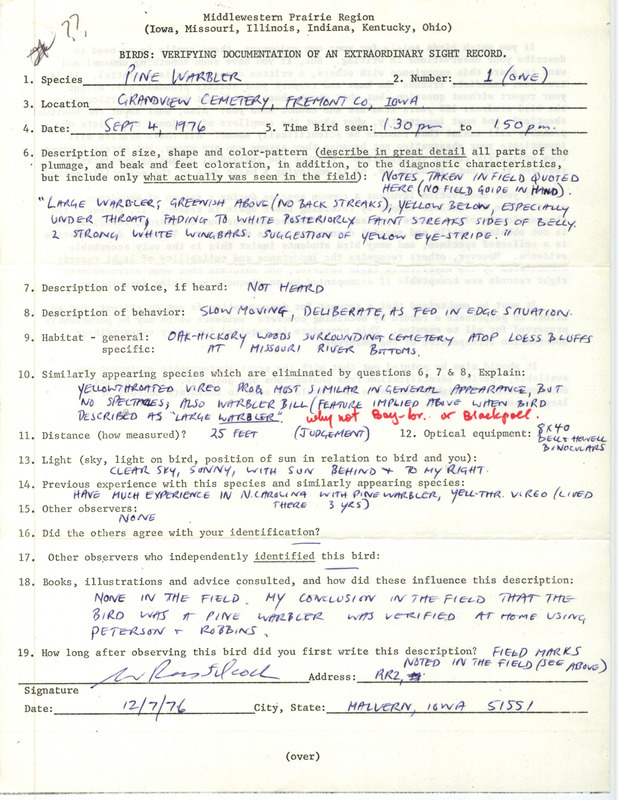 ??
Middlewestern Prairie Region
(Iowa, Missouri, Illinois, Indiana, Kentucky, Ohio)
BIRDS: VERIFYING DOCUMENTATION OF AN EXTRAORDINARY SIGHT RECORD.
1. Species PINE WARBLER 2. Number: 1 (ONE)
3. Location GRANDVIEW CEMETERY, FREMONT CO, IOWA
4. Date: SEPT 4, 1976 5. Time Bird seen: 1:30 pm to 1:50 pm.
6. Description of size, shape and color-pattern (describe in great detail all parts of the
plumage, and beak and feet coloration, in addition, to the diagnostic characteristics,
but include only what actually was seen in the field): NOTES TAKEN IN FIELD QUOTED
HERE (NO FIELD GUIDE IN HAND).
"LARGE WARBLER; GREENISH ABOVE (NO BACK STREAKS), YELLOW BELOW, ESPECIALLY
UNDER THROAT, FADING TO WHITE POSTERIORLY FAINT STREAKS SIDES OF BELLY.
2 STRONG WHITE WINGBARS. SUGGESTION OF YELLOW EYE-STRIPE."
7. Description of voice, if heard: NOT HEARD
8. Description of behavior: SLOW MOVING, DELIBERATE, AS FED IN EDGE SITUATION.
9. Habitat - general: OAK-HICKORY WOODS SURROUNDING CEMETERY ATOP LOESS BLUFFS
specific: AT MISSOURI RIVER BOTTOMS.
10. Similarly appearing species which are eliminated by questions 6, 7 & 8, Explain:
YELLOWTHROATED VIREO PROB. MOST SIMILAR IN GENERAL APPEARANCE, BUT
NO SPECTACLES; ALSO WARBLER BILL (FEATURE IMPLIED ABOVE WHEN BIRD
DESCRIBED AS "LARGE WARBLER". why not Bay-br. or Blackpoll.
11. Distance (how measured)? 25 FEET (JUDGEMENT) 12. Optical equipment: 8X40
BELL & HOWELL
BINOCULARS
13. Light (sky, light on bird, position of sun in relation to bird and you):
CLEAR SKY, SUNNY, WITH SUN BEHIND + TO MY RIGHT.
14. Previous experience with this species and similarly appearing species:
HAVE MUCH EXPERIENCE IN N. CAROLINA WITH PINE WARBLER, YELL-THR. VIREO (LIVED
THERE 3 YRS)
15. Other observers:
NONE
16. Did the others agree with your identification?
17. Other observers who independently identified this bird:
18. Books, illustrations and advice consulted, and how did these influence this description:
NONE IN THE FIELD. MY CONCLUSION IN THE FIELD THAT THE
BIRD WAS A PINE WARBLER WAS VERIFIED AT HOME USING
PETERSON + ROBBINS.
19. How long after observing this bird did you first write this description? FIELD MARKS
NOTED IN THE FIELD (SEE ABOVE)
Address: RR2,
Signature
Date: 12/7/76 City, State: MALVERN, IOWA 51551
(over)